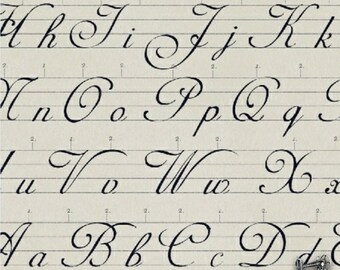 Hh Ii Jj Kk
Nn Oo Pp Qq
Uu Vv Ww Xx
Aa Bb Cc Dd